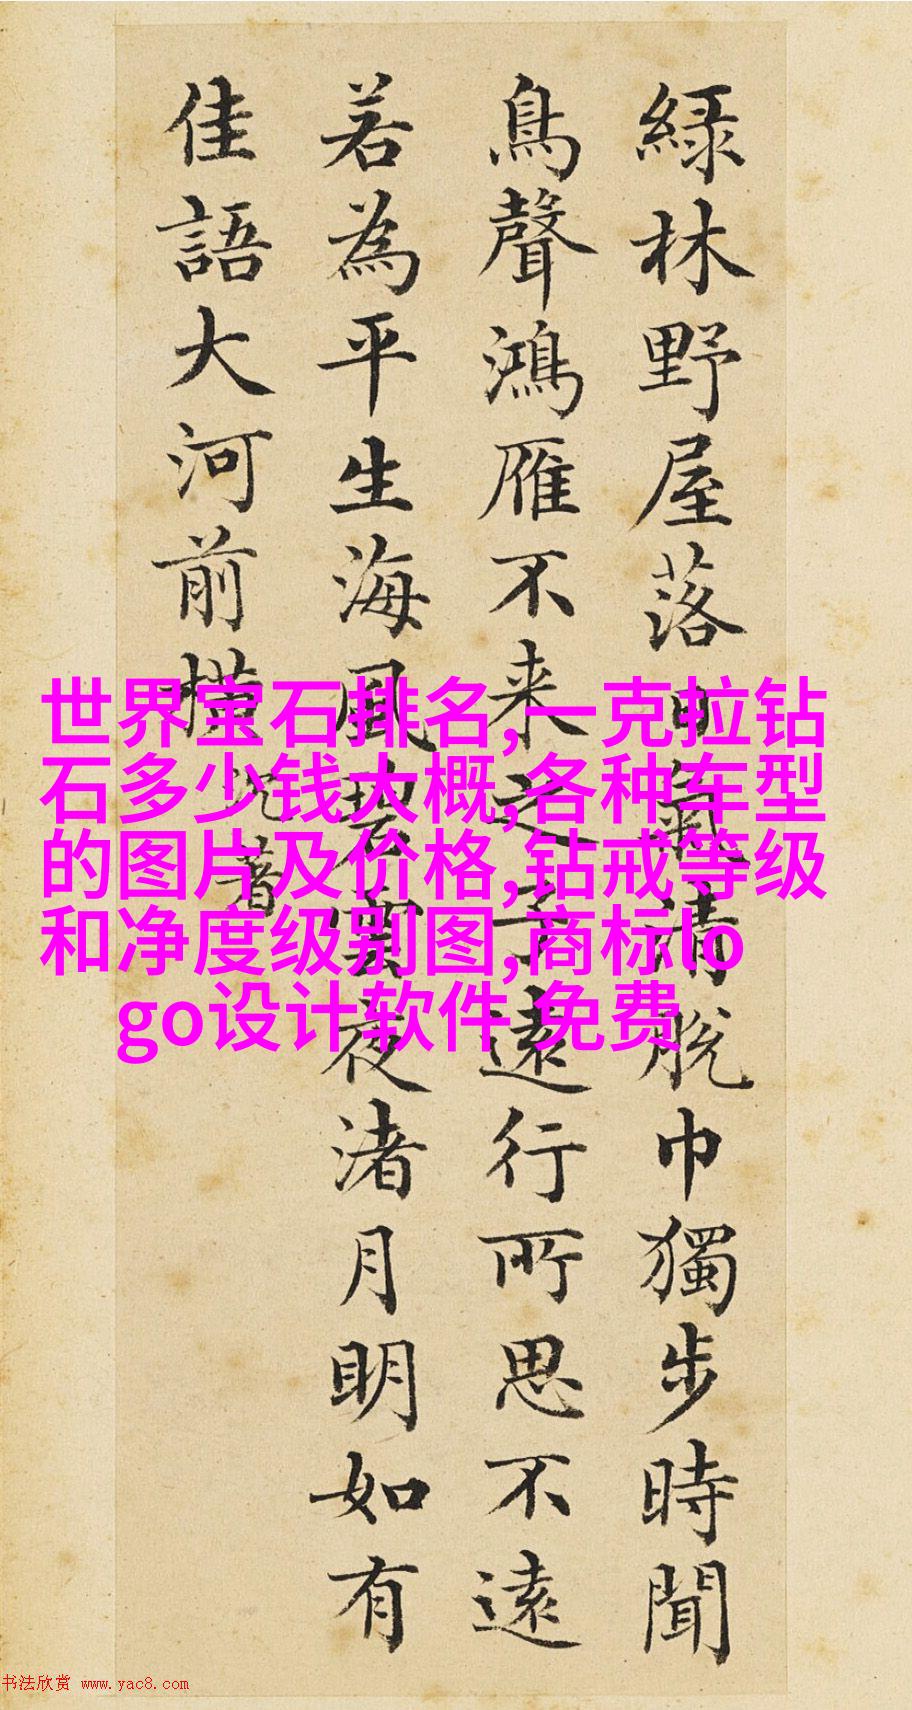 綠林野屋落日氣清脫巾獨步時聞
鳥聲鴻雁不来之子遠行所思不遠
若為平生海風碧雲夜渚月明如有
佳語大河前橫
沉著
世界宝石排名,一克拉钻
石多少钱大概,各种车型
的图片及价格,钻戒等级
和净度级别图,商标lo
go设计软件 免费
书法欣赏 www.yac8.com